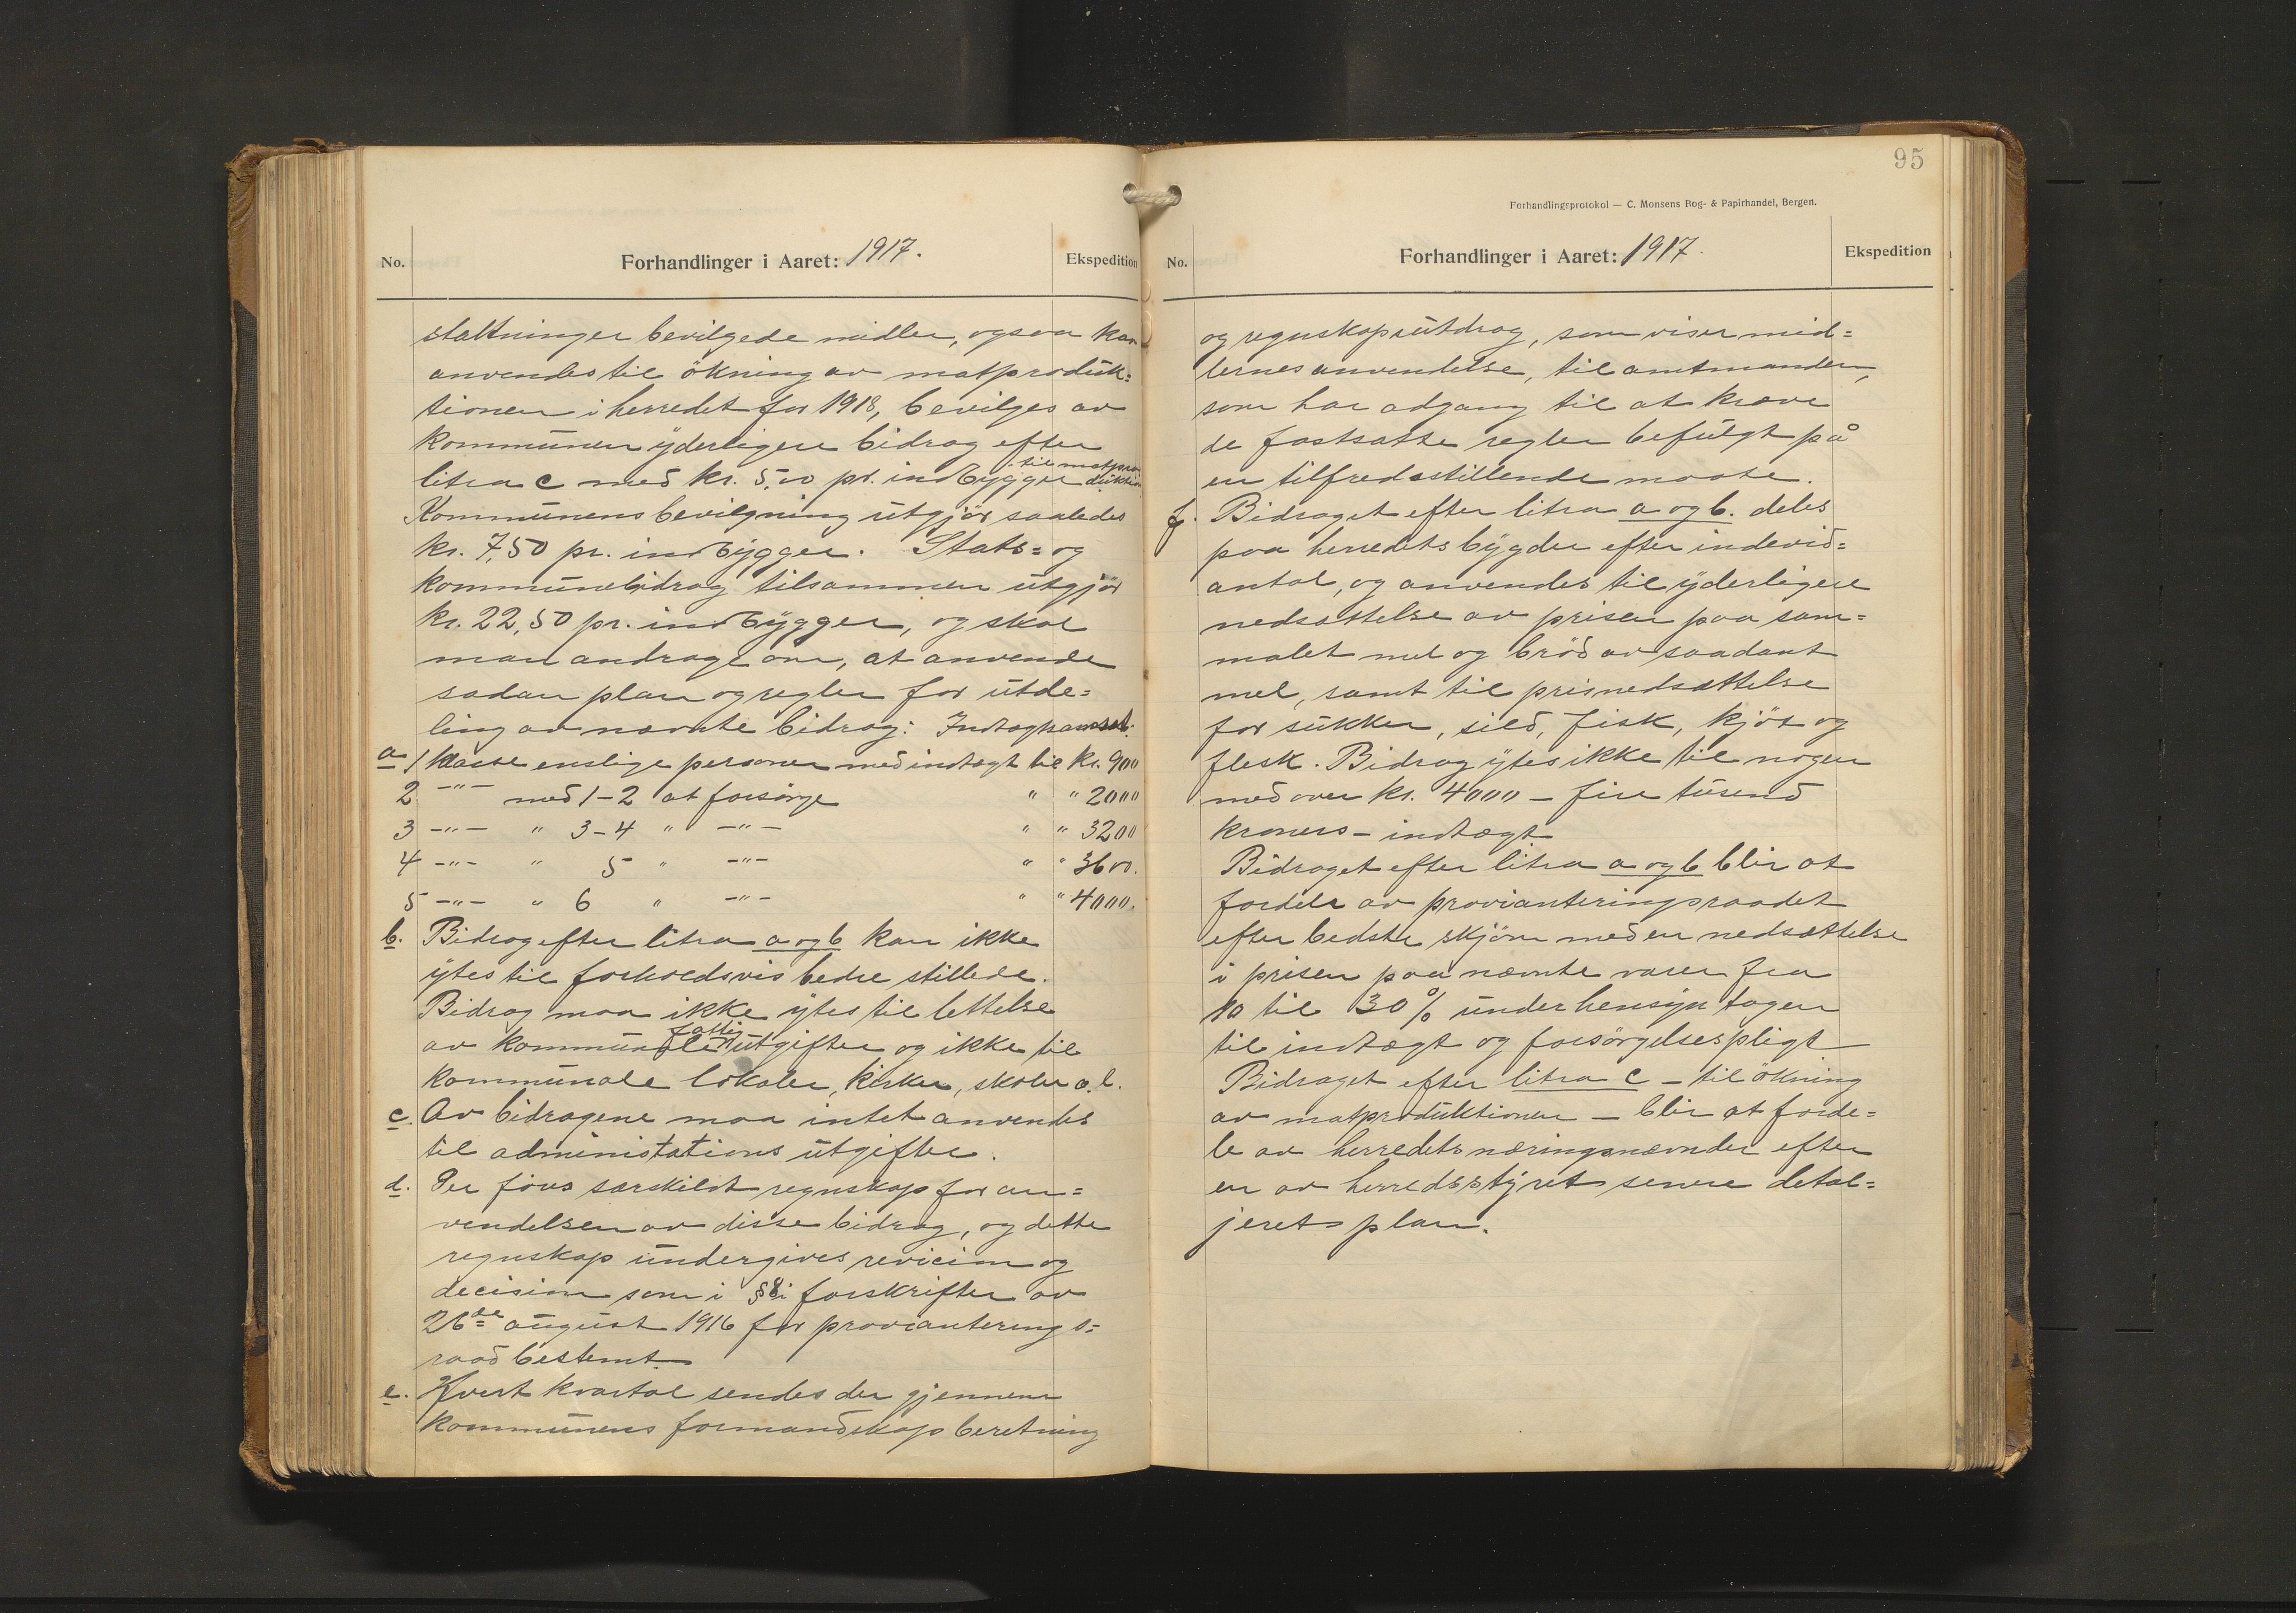 No.
Forhandlinger i Aaret: 1917.
Ekspedition
staltninger bevilgede midler, ogsaa kan
anvendes til ökning av matproduk=
tionen i herredet for 1918, bevilges av
kommunen yderligere bidrag efter
litra c med kr. 5,00 pr. indbygger til matpro
duktion
Kommunens bevilgning utgjör saaledes
kr. 7,50 pr. indbygger. Stats= og
kommunebidrag tilsammen utgjör
kr. 22,50 pr. indbygger, og skal
man andrage om, at anvende
sadan plan og regler for utde=
ling av nævnte bidrag:
a 1 klasse enslige personer med indtægt til kr. 900
2 -"- med 1-2 at forsörge " " 2000
3 -"- " 3-4 " -"- " " 3200
4 -"- " 5 " -"- " " 3600.
5 -"- " 6 " -"- " " 4000.
b. Bidrag efter litra a og b kan ikke
ytes til forholdsvis bedre stillede.
Bidrag maa ikke ytes til lettelse
fattig
av kommunale utgifter og ikke til
kommunale lokaler, kirker, skoler o.l.
c. Av bidragene maa intet anvendes
til administations utgifter.
d. Der föres særskildt regnskap for an=
vendelsen av disse bidrag, og dette
regnskap undergives revicion og
decision som i § 8 i forskrifter av
26de august 1916 for provianterings=
raad bestemt.
e. Hvert kvartal sendes der gjennem
kommunens formandskap beretning
95
Forhandlingsprotokol — C. Monsens Bog- & Papirhandel, Bergen.
No.
Forhandlinger i Aaret: 1917.
Ekspedition
og regnskapsutdrag, som viser mid=
lernes anvendelse, til amtmanden,
som har adgang til at kræve
de fastsatte regler befulgt på
en tilfredsstillende maate.
f. Bidraget efter litra a og b. deles
paa herredets bygder efter individ=
antal, og anvendes til yderligere
nedsættelse av prisen paa sam=
malet mel og bröd av saadant
mel, samt til prisnedsættelse
for sukker, sild, fisk, kjöt og
flesk. Bidrag ytes ikke til nogen
med over kr. 4000 - fire tusend
kroners - indtægt
Bidraget efter litra a og b blir at
fordele av provianteringsraadet
efter bedste skjön med en nedsættelse
i prisen paa nævnte varer fra
10 til 30 % under hensyn tagen
til indtægt og forsörgelsespligt
Bidraget efter litra c - til ökning
av matproduktionen - blir at forde=
le av herredets næringsnævnder efter
en av herredsstyret senere detal=
jeret plan.